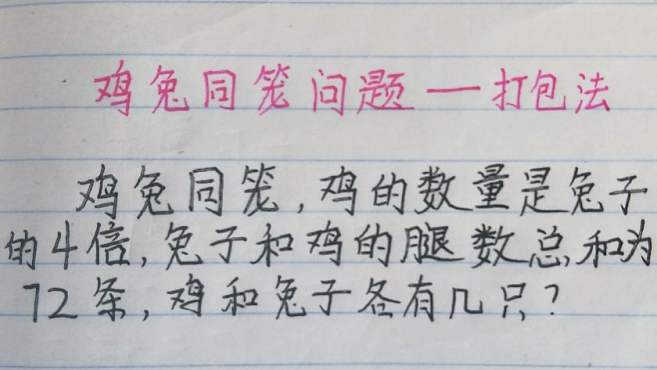 鸡兔同笼问题一打包法
鸡兔同笼,鸡的数量是兔子
的4倍,兔子和鸡的腿数总和为
72条,鸡和兔子各有几只?